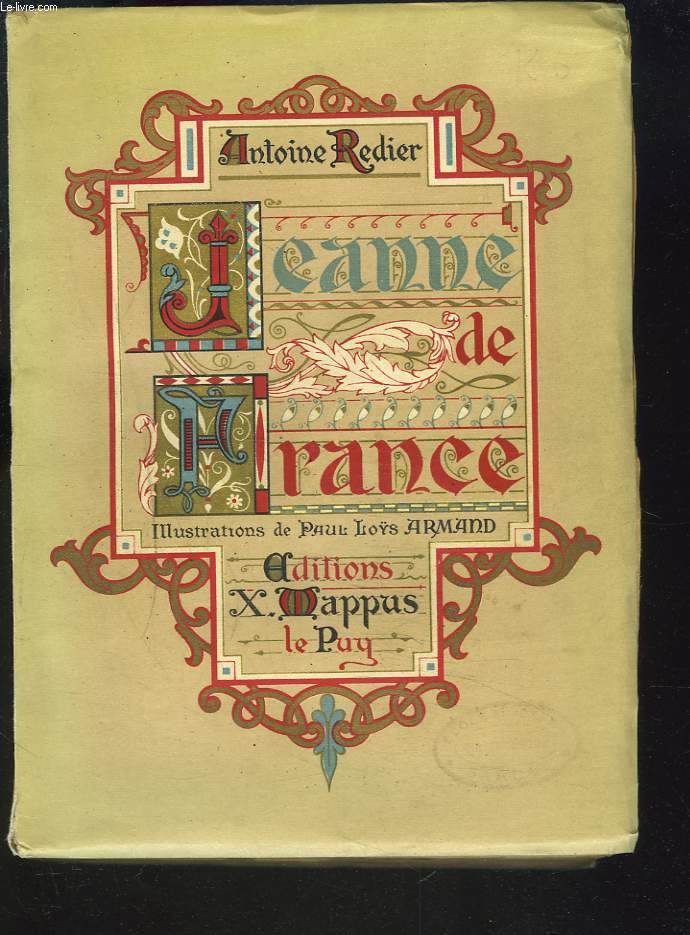 Le-livre.com
Antoine Redier
Jeanne
de
France
Illustrations de PAUL LOŸS ARMAND
Editions
X. Mappus
le Puy